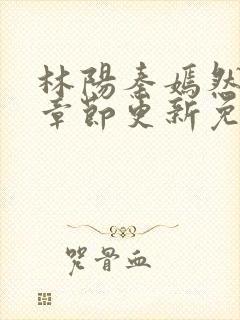 林陽秦嫣然
章節更新免
咒骨血